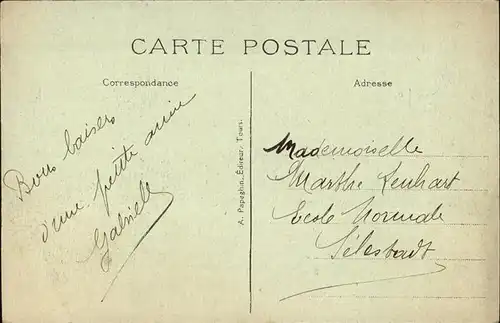 CARTE POSTALE
Correspondance
Bons baisers
d'une petite amie
Gabrielle
A. Papeghin, Éditeur, Tours.
Adresse
Mademoiselle
Marthe Lenhart
Ecole Normale
Sélestadt